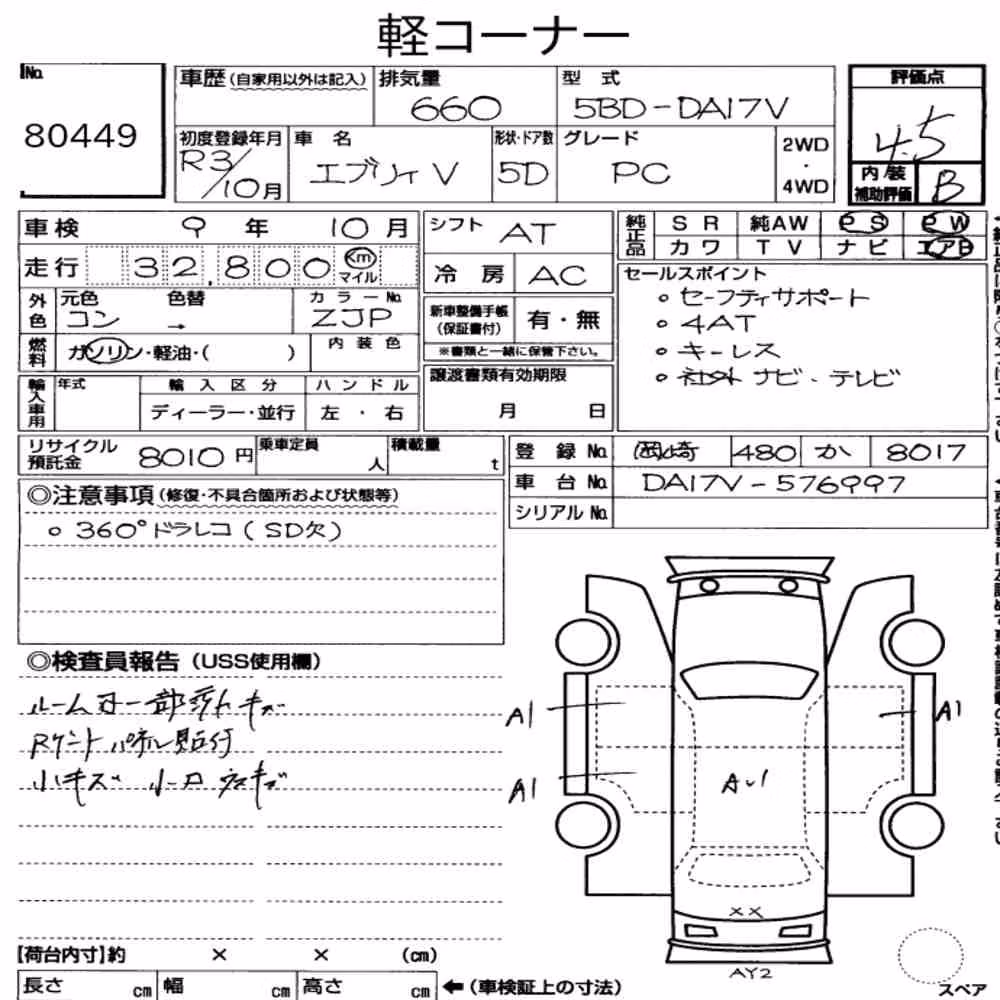 軽コーナー
No.
80449
車歴(自家用以外は記入)
排気量
660
型 式
5BD-DA17V
評価点
4.5
初度登録年月
R3/10月
車 名
エブリイ V
形状・ドア数
5D
グレード
PC
2WD
・
4WD
内/装
補助評価
B
車検 9 年 10 月
走行 32,800 Km
マイル
シフト AT
冷 房 AC
純正品
S R 純AW P S P W
カ ワ T V ナ ビ エアB
外色
元色 コン
色替 →
カラーNo.
ZJP
燃料
ガソリン・軽油・( )
内 装 色
新車整備手帳
(保証書付)
有・無
※書類と一緒に保管下さい。
セールスポイント
○ セーフティサポート
○ 4AT
○ キーレス
○ 社外ナビ、テレビ
輸入車用
年式
輸 入 区 分
ディーラー・並行
ハ ン ド ル
左 ・ 右
譲渡書類有効期限
月 日
リサイクル
預託金
8010円
乗車定員
人
積載量
t
登 録 No. 岡崎 480 か 8017
車 台 No. DA17V-576997
シリアル No.
◎注意事項(修復・不具合箇所および状態等)
○ 360°ドラレコ(SD欠)
◎検査員報告(USS使用欄)
小キズ
A1
A1
A1
AU1
XX
AY2
【荷台内寸】約 × × (cm)
長さ cm 幅 cm 高さ cm ←(車検証上の寸法)
スペア